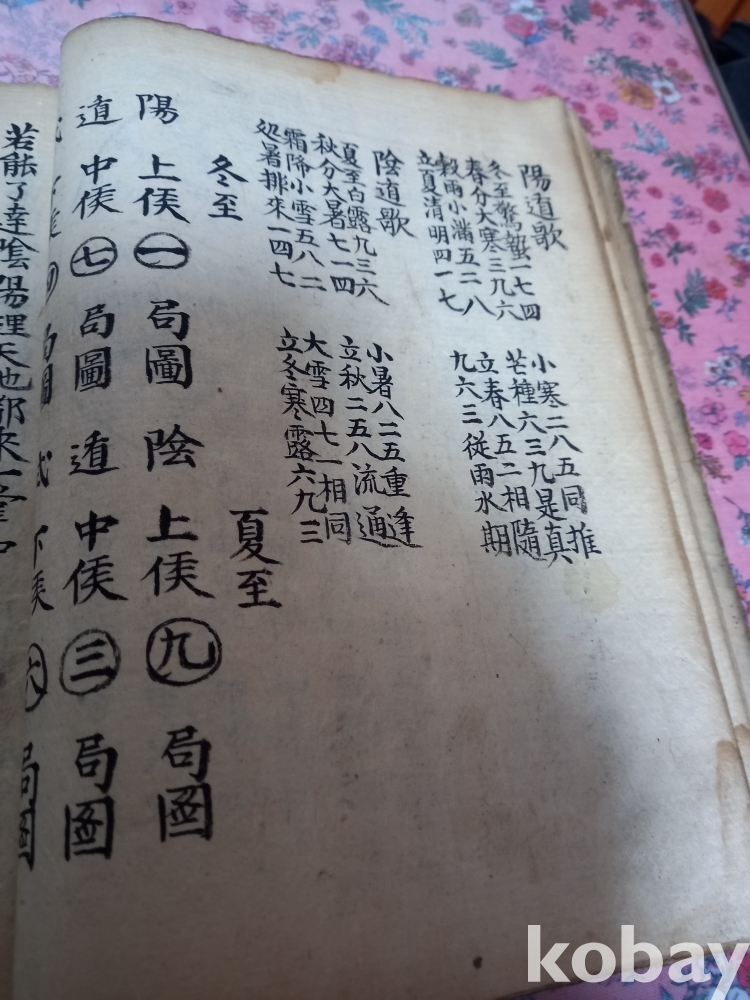 陽遁歌
冬至驚蟄一七四 小寒二八五同推
春分大寒三九六 芒種六三九是真
穀雨小滿五二八 立春八五二相隨
立夏清明四一七 九六三從雨水期
陰遁歌
夏至白露九三六 小暑八二五重逢
秋分大暑七一四 立秋二五八流通
霜降小雪五八二 大雪四七一相同
処暑排來一四七 立冬寒露六九三
冬至 夏至
陽 上候 一 局圖 陰 上候 九 局圖
遁 中候 七 局圖 遁 中候 三 局圖
式 下候 四 局圖 式 下候 六 局圖
若能了達陰陽理天也都來一
kobay